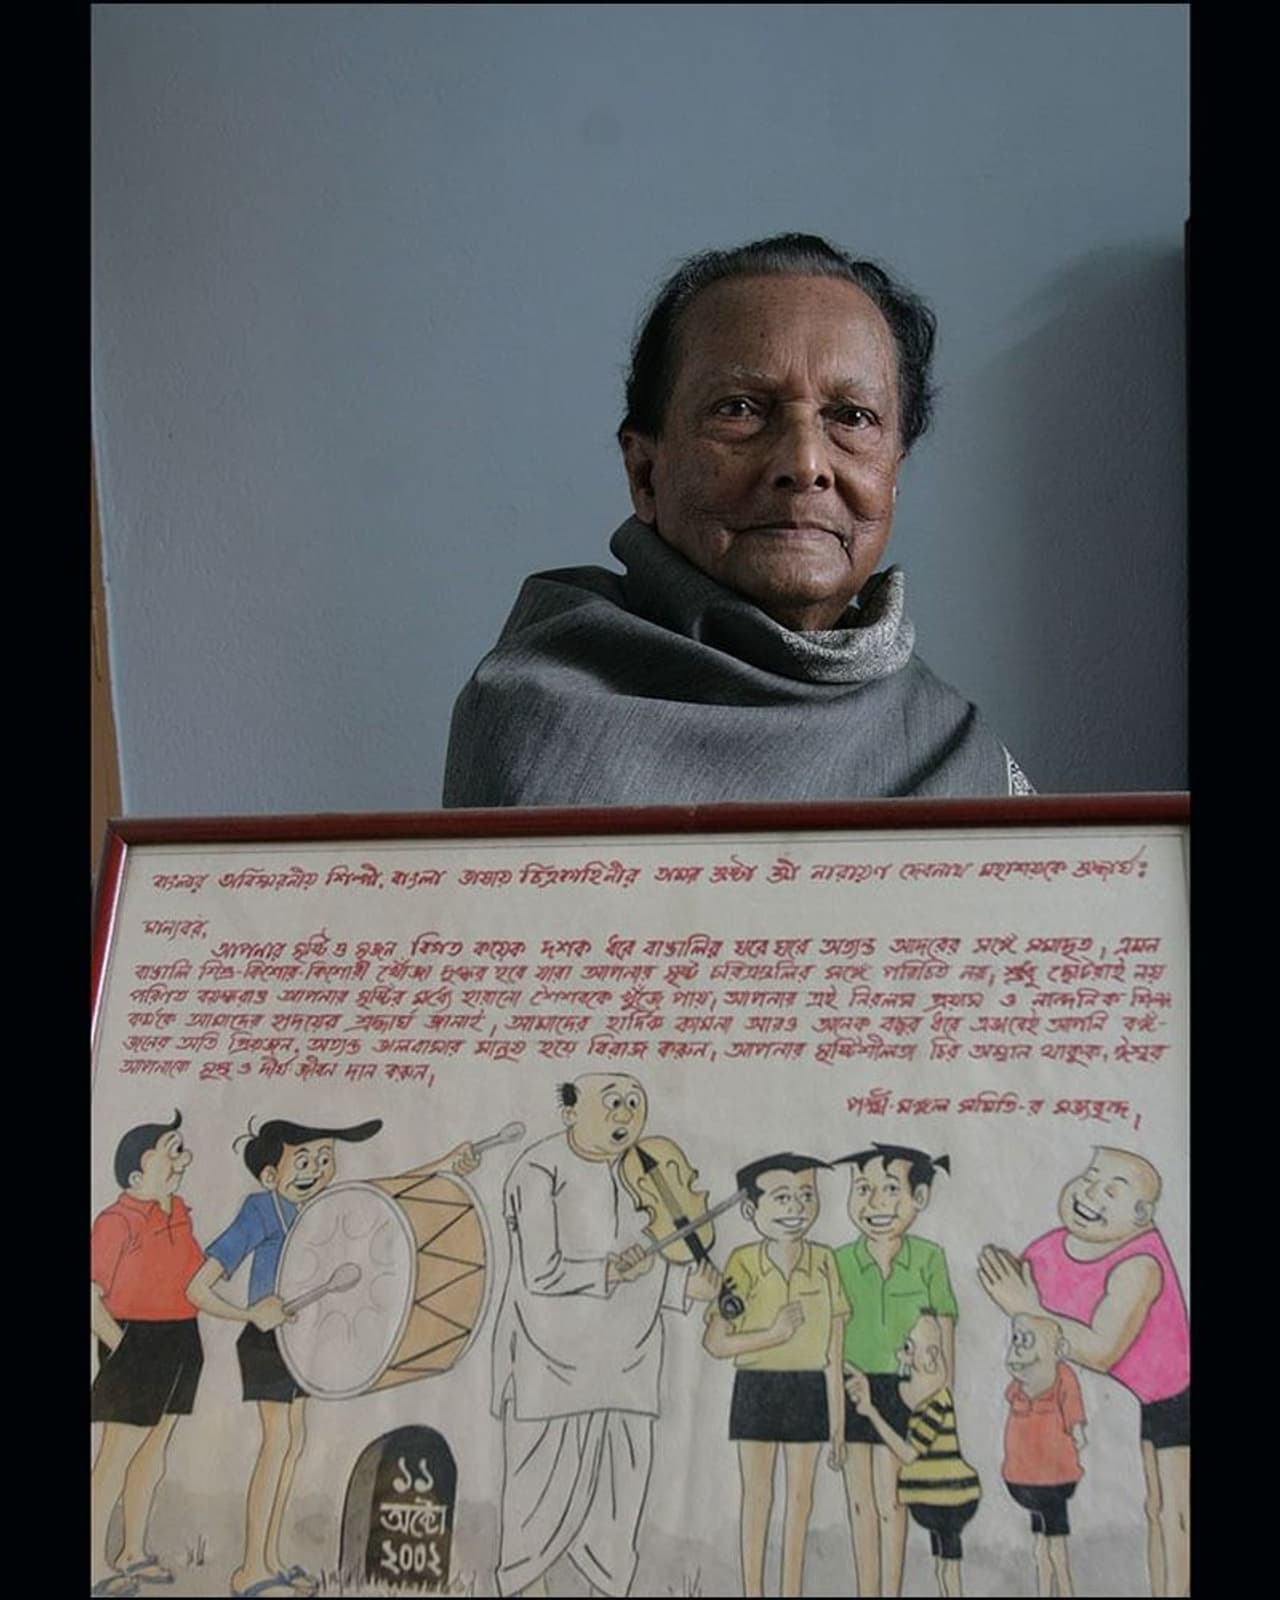 বাংলার অবিস্মরনীয় শিল্পী, বাংলা ভাষায় চিত্রকাহিনীর অমর স্রষ্টা শ্রী নারায়ণ দেবনাথ মহাশয়কে শ্রদ্ধার্ঘ:
মান্যবর,
আপনার সৃষ্টি ও সৃজন, বিগত কয়েক দশক ধরে বাঙালির ঘরে ঘরে অত্যন্ত আদরের সঙ্গে সমাদৃত, এমন
বাঙালি শিশু-কিশোর-কিশোরী খোঁজা দুষ্কর হবে যারা আপনার সৃষ্ট চরিত্রগুলির সঙ্গে পরিচিত নয়, শুধু ছোটরাই নয়
পরিণত বয়স্করাও আপনার সৃষ্টির মধ্যে হারানো শৈশবকে খুঁজে পায়, আপনার এই নিরলস প্রয়াস ও নান্দনিক শিল্প
কর্মকে আমাদের হৃদয়ের শ্রদ্ধার্ঘ জানাই, আমাদের হার্দিক কামনা আরও অনেক বছর ধরে এভাবেই আপনি বঙ্গ-
জনের অতি প্রিয়জন, অত্যন্ত ভালবাসার মানুষ হয়ে বিরাজ করুন, আপনার সৃষ্টিশীলতা চির অম্লান থাকুক, ঈশ্বর
আপনাকে সুস্থ ও দীর্ঘ জীবন দান করুন,
পল্লী-মঙ্গল সমিতি-র সভ্যবৃন্দ,
১১
অক্টো
২০০২